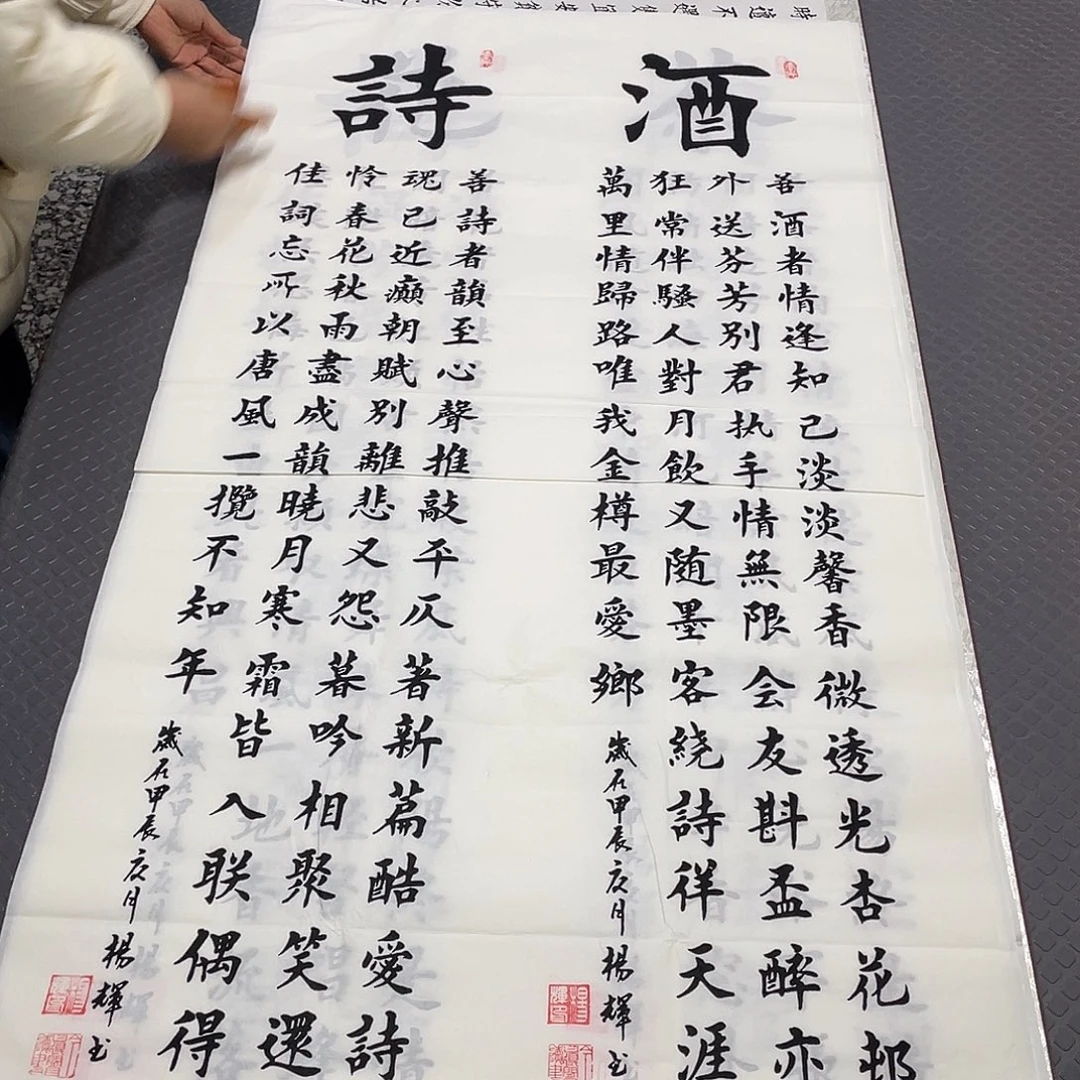 酒
善酒者情逢知己淡淡馨香微透光杏花邨
外送芬芳别君执手情無限会友斟盃醉亦
狂常伴騷人對月飲又随墨客繞詩徉天涯
萬里情歸路唯我金樽最愛鄉
歲在甲辰月楊輝书
詩
善詩者韻至心聲推敲平仄著新篇酷愛詩
魂已近癲朝賦别離悲又怨暮吟相聚笑還
怜春花秋雨盡成韻曉月寒霜皆入联偶得
佳詞忘所以唐風一攬不知年
歲在甲辰月楊輝书